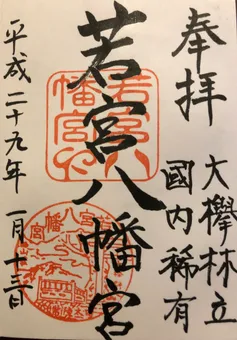 奉拝
大欅林立
國内稀有
若宮八幡宮
平成二十九年一月十三日
若宮八
幡宮